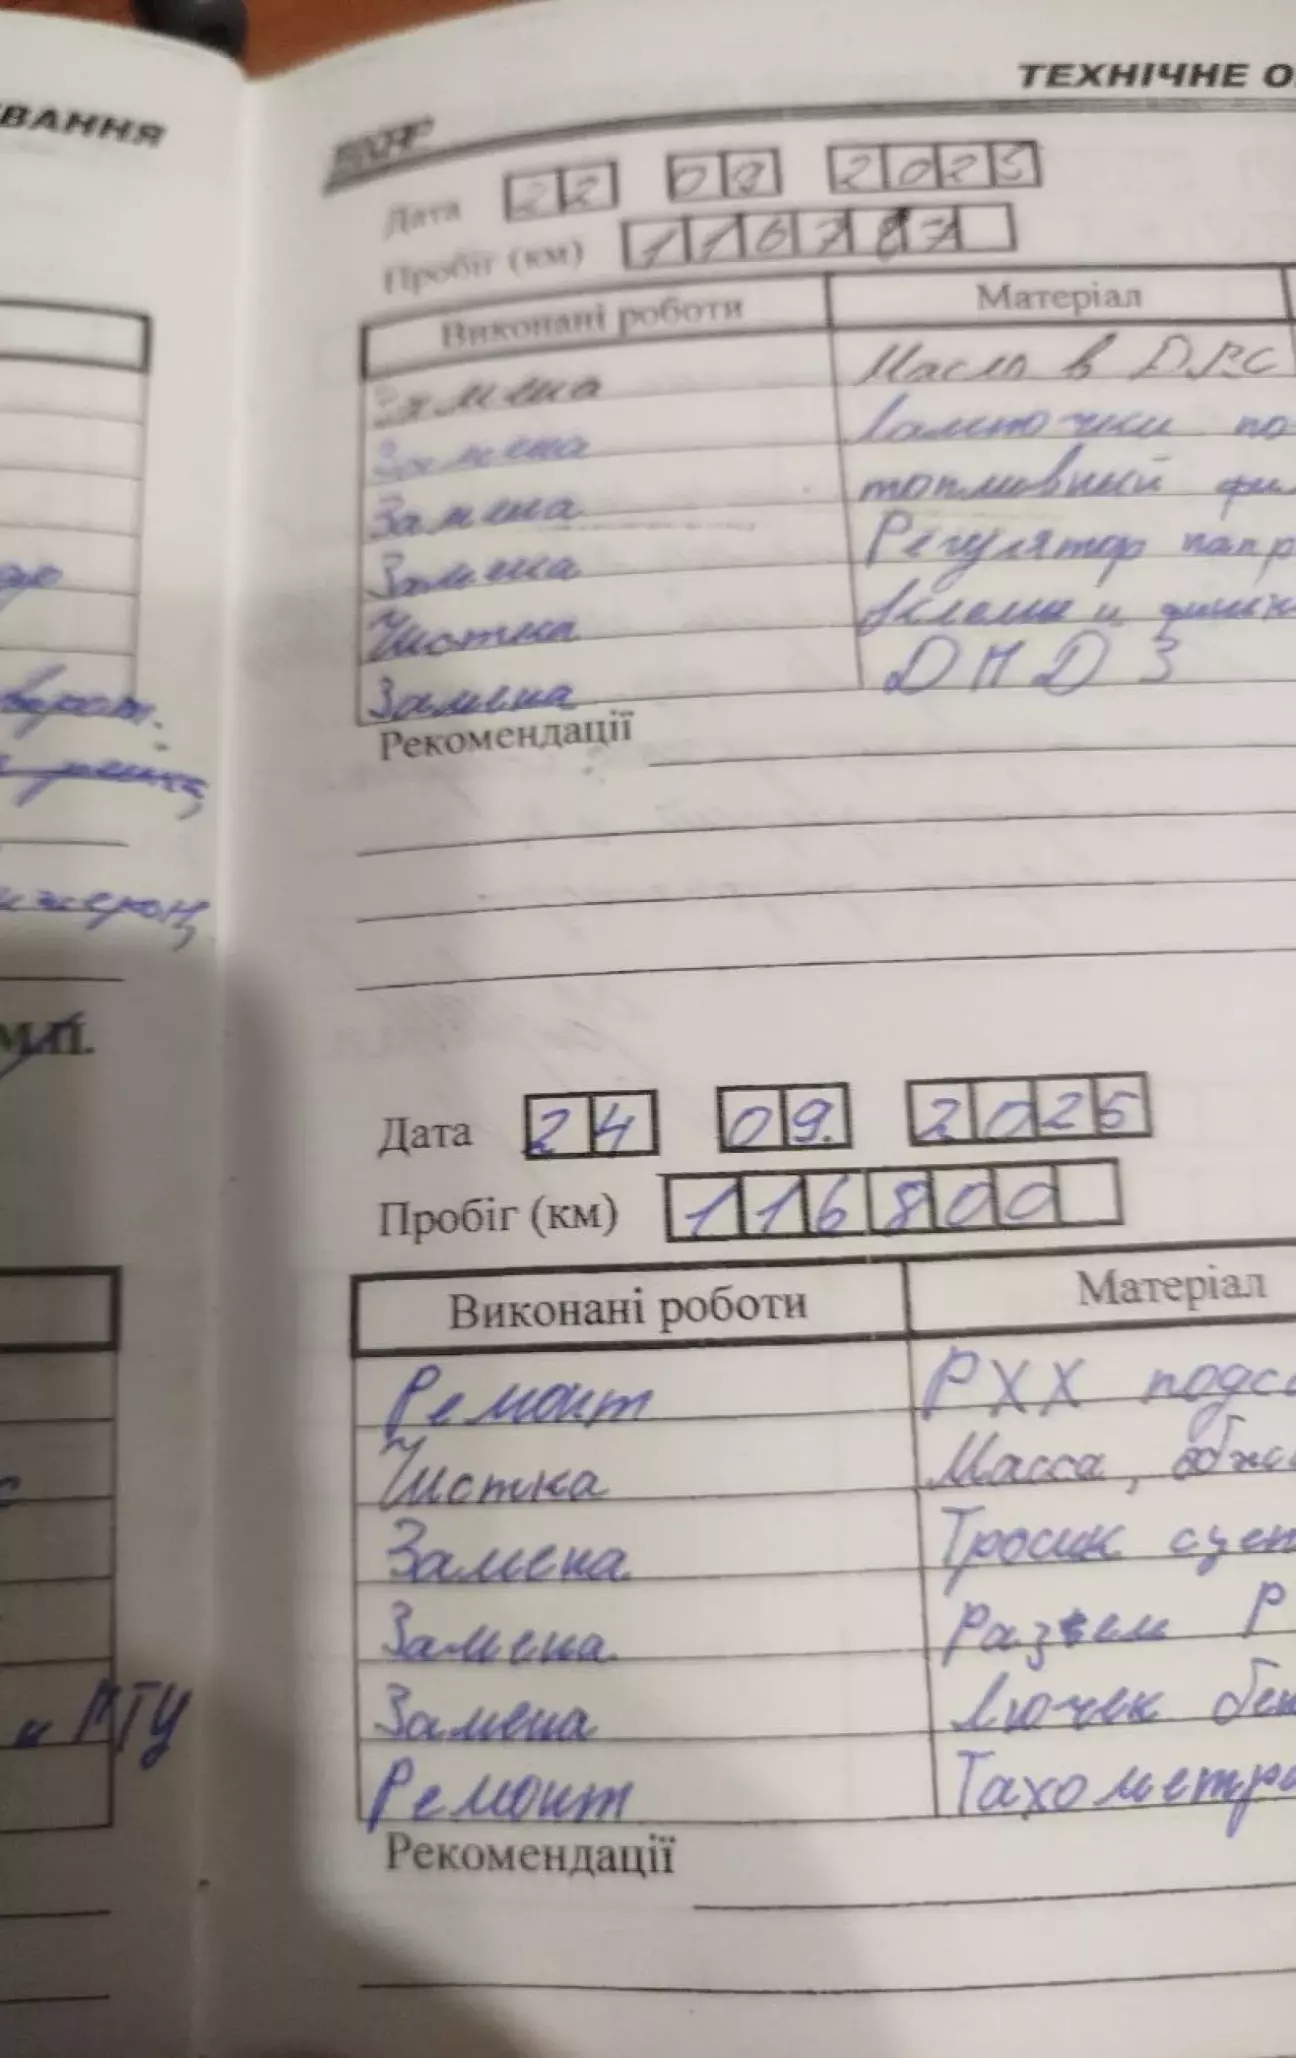 ВАННЯ
ТЕХНІЧНЕ О
Дата 22 09 2025
Пробіг (км) 116787
Виконані роботи Матеріал
Замена Масло в
Замена Лампочки по
Замена топливный фил
Замена Регулятор напр
Чистка клемы и
Замена ДПДЗ
Рекомендації
М.П.
Дата 24 09. 2025
Пробіг (км) 116800
Виконані роботи Матеріал
Ремонт РХХ подсо
Чистка Масса, обжи
Замена Тросик сцеп
Замена Разъем Р
Замена Лючек бен
и ГТЦ
Ремонт Тахометра
Рекомендації